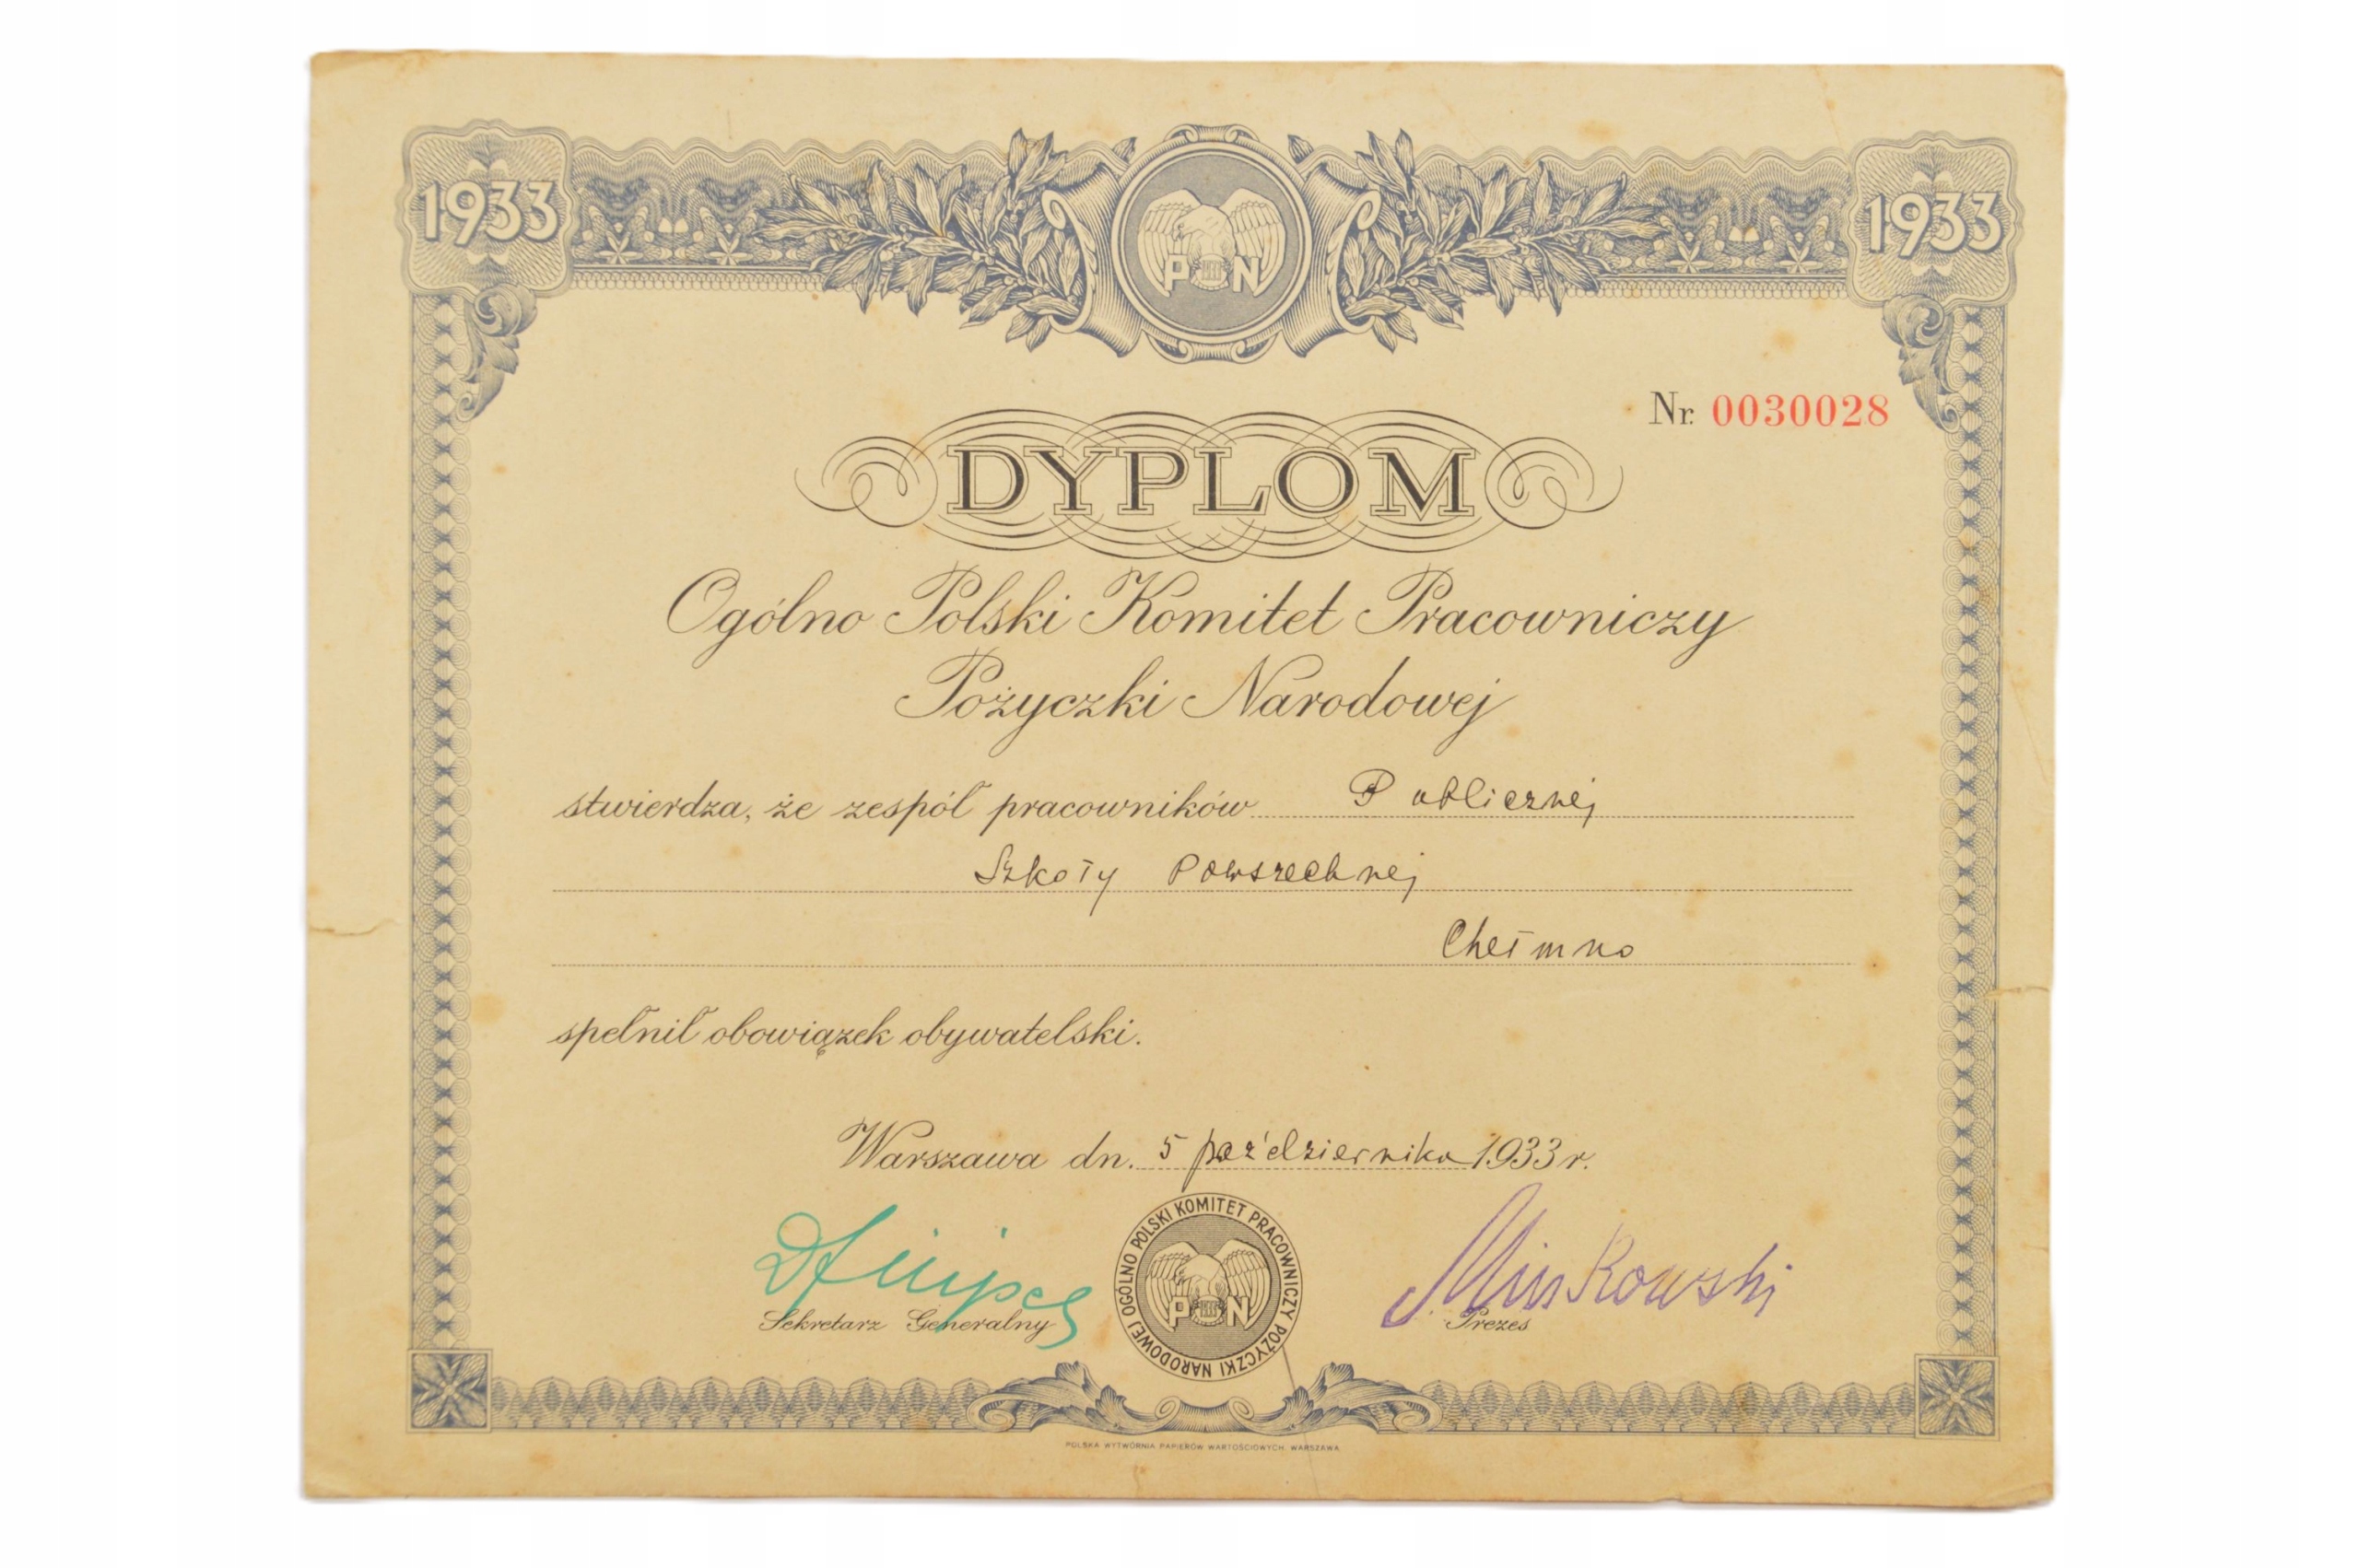 1933
1933
P N
Nr. 0030028
DYPLOM
Ogólno Polski Komitet Pracowniczy
Pożyczki Narodowej
stwierdza, że zespół pracowników Publicznej
Szkoły Powszechnej
Chełmno
spełnił obowiązek obywatelski.
Warszawa dn. 5 października 1933 r.
OGÓLNO POLSKI KOMITET PRACOWNICZY POŻYCZKI NARODOWEJ
P N
Sekretarz Generalny
Prezes
POLSKA WYTWÓRNIA PAPIERÓW WARTOŚCIOWYCH WARSZAWA